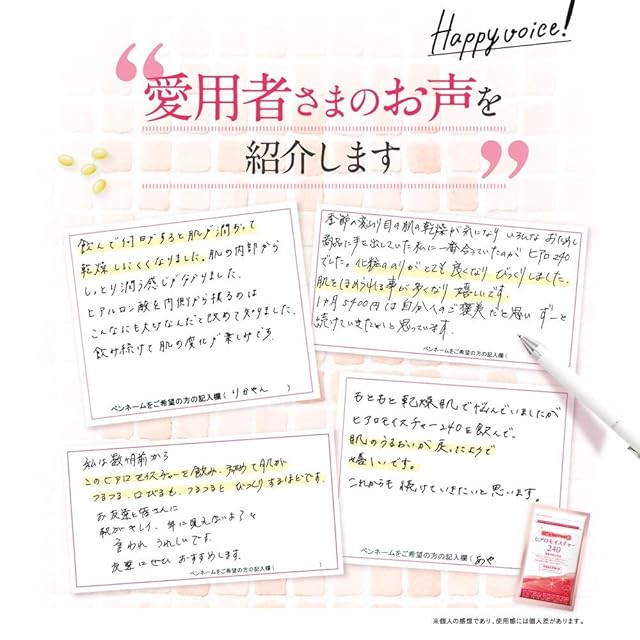 Happy voice!
“愛用者さまのお声を
紹介します”
飲んで何日かすると肌が潤おって
乾燥しにくくなりました。肌の内部から
しっとり潤う感じがありました。
ヒアルロン酸を内側から摂るのは
こんなにも大切なんだと改めて知りました。
飲み続けて肌の変化が楽しみです。
ペンネームをご希望の方の記入欄( りかやん )
季節の変わり目の肌の乾燥が気になり いろんな お試し
商品に手を出していた私に一番合っていたのが ヒアロ240
でした。化粧ののりがとても良くなり びっくりしました。
肌をほめられる事が多くなり 嬉しいです。
1ヶ月5400円は自分へのご褒美だと思い ずーと
続けていきたいと思っています。
ペンネームをご希望の方の記入欄(
私は数ヶ月前から
このヒアロモイスチャーを飲み、 肌が
つるつる、口びるも、つるつると びっくりするほどです。
お友達と皆さんに
肌がキレイ、年に見えないよ
言われ うれしいです。
友達にぜひ おすすめします。
ペンネームをご希望の方の記入欄( )
もともと乾燥肌で悩んでいましたが
ヒアロモイスチャー240を飲んで、
肌のうるおいが戻ったようで
嬉しいです。
これからも続けていきたいと思います。
ペンネームをご希望の方の記入欄( あや )
ヒアロモイスチャー
240
※個人の感想であり、使用感には個人差があります。